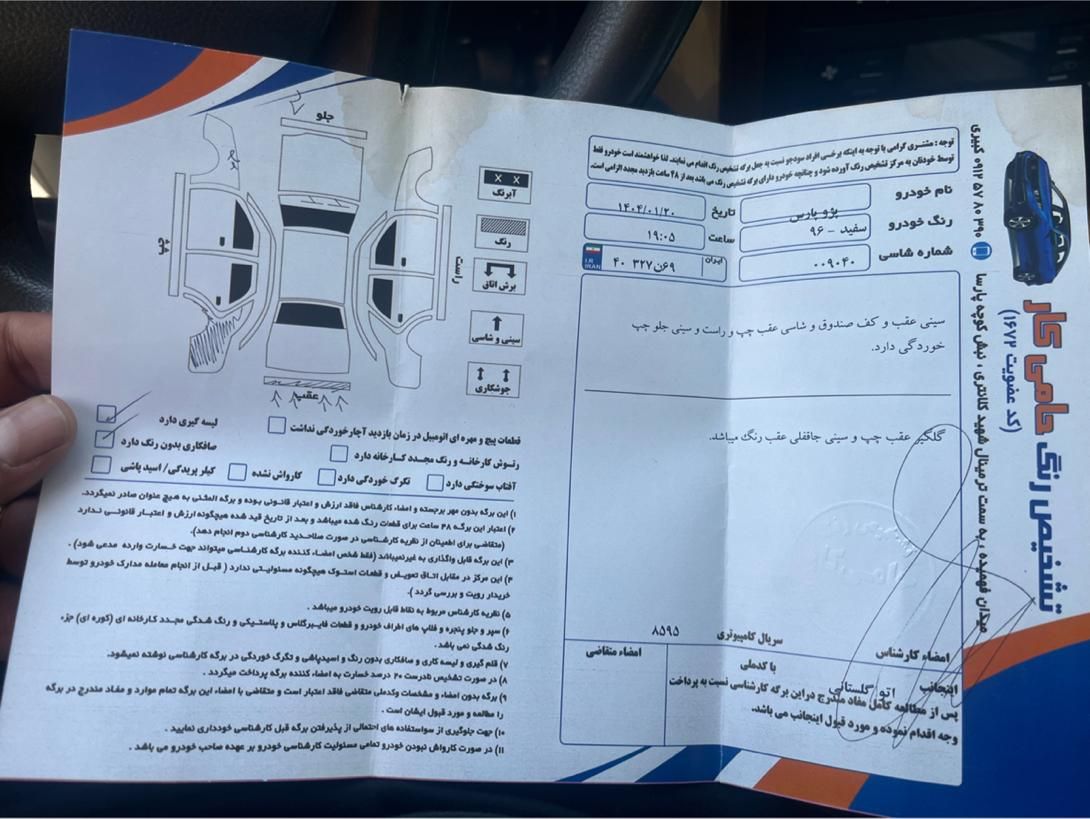 تشخیص رنگ حامی کار
(کد عضویت ۱۶۷۲)
میدان فهمیده ، به سمت ترمینال شهید کلانتری ، نبش کوچه پارسا ۰۹۱۲ ۵۷ ۸۰ ۳۹۰ کبیری
توجه : مشتری گرامی با توجه به اینکه برخی افراد سودجو نسبت به جعل برگه تشخیص رنگ اقدام می نمایند. لذا خواهشمند است خودرو فقط
توسط خودتان به مرکز تشخیص رنگ آورده شود و چنانچه خودرو دارای برگه تشخیص رنگ می باشد بعد از ۴۸ ساعت بازدید مجدد الزامی است.
نام خودرو پژو پارس تاریخ ۱۴۰۴/۰۱/۲۰
رنگ خودرو سفید - ۹۶ ساعت ۱۹:۰۵
شماره شاسی ۰۰۹۰۴۰ ایران ۶۹ن۳۲۷ ۴۰
I.R.
IRAN
سینی عقب و کف صندوق و شاسی عقب چپ و راست و سینی جلو چپ
خوردگی دارد.
گلگیر عقب چپ و سینی جاقفلی عقب رنگ میباشد.
سریال کامپیوتری ۸۵۹۵
امضاء کارشناس
امضاء متقاضی
اینجانب اتو گلستانی با کدملی
پس از مطالعه کامل مفاد مندرج در این برگه کارشناسی نسبت به پرداخت
وجه اقدام نموده و مورد قبول اینجانب می باشد.
جلو
راست
چپ
عقب
X X
آبرنگ
رنگ
برش اتاق
سینی و شاسی
جوشکاری
قطعات پیچ و مهره ای اتومبیل در زمان بازدید آچارخوردگی نداشت
لیسه گیری دارد
رتوش کارخانه و رنگ مجدد کارخانه دارد
صافکاری بدون رنگ دارد
آفتاب سوختگی دارد
تگرگ خوردگی دارد
کارواش نشده
کیلر پریدگی/ اسید پاشی
۱) این برگه بدون مهر برجسته و امضاء کارشناس فاقد ارزش و اعتبار قانونی بوده و برگه المثنی به هیچ عنوان صادر نمیگردد.
۲) اعتبار این برگه ۴۸ ساعت برای قطعات رنگ شده میباشد و بعد از تاریخ قید شده هیچگونه ارزش و اعتبار قانونی ندارد
(متقاضی برای اطمینان از نظریه کارشناسی در صورت صلاحدید کارشناسی دوم انجام دهد).
۳) این برگه قابل واگذاری به غیر نمیباشد (فقط شخص امضاء کننده برگه کارشناسی میتواند جهت خسارت وارده مدعی شود) .
۴) این مرکز در مقابل اتاق تعویض و قطعات استوک هیچگونه مسئولیتی ندارد ( قبل از انجام معامله مدارک خودرو توسط
خریدار رویت و بررسی گردد ).
۵) نظریه کارشناس مربوط به نقاط قابل رویت خودرو میباشد .
۶) سپر و جلو پنجره و فلاپ های اطراف خودرو و قطعات فایبرگلاس و پلاستیکی و رنگ شدگی مجدد کارخانه ای (کوره ای) جزء
رنگ شدگی نمی باشد .
۷) قلم گیری و لیسه کاری و صافکاری بدون رنگ و اسیدپاشی و تگرگ خوردگی در برگه کارشناسی نوشته نمیشود.
۸) در صورت تشخیص نادرست ۲۰ درصد خسارت به امضاء کننده برگه پرداخت میگردد .
۹) برگه بدون امضاء و مشخصات وکدملی متقاضی فاقد اعتبار است و متقاضی با امضاء این برگه تمام موارد و مفاد مندرج در برگه
را مطالعه و مورد قبول ایشان است .
۱۰) جهت جلوگیری از سواستفاده های احتمالی از پذیرفتن برگه قبل کارشناسی خودداری نمایید .
۱۱) در صورت کارواش نبودن خودرو تمامی مسئولیت کارشناسی خودرو بر عهده صاحب خودرو می باشد .